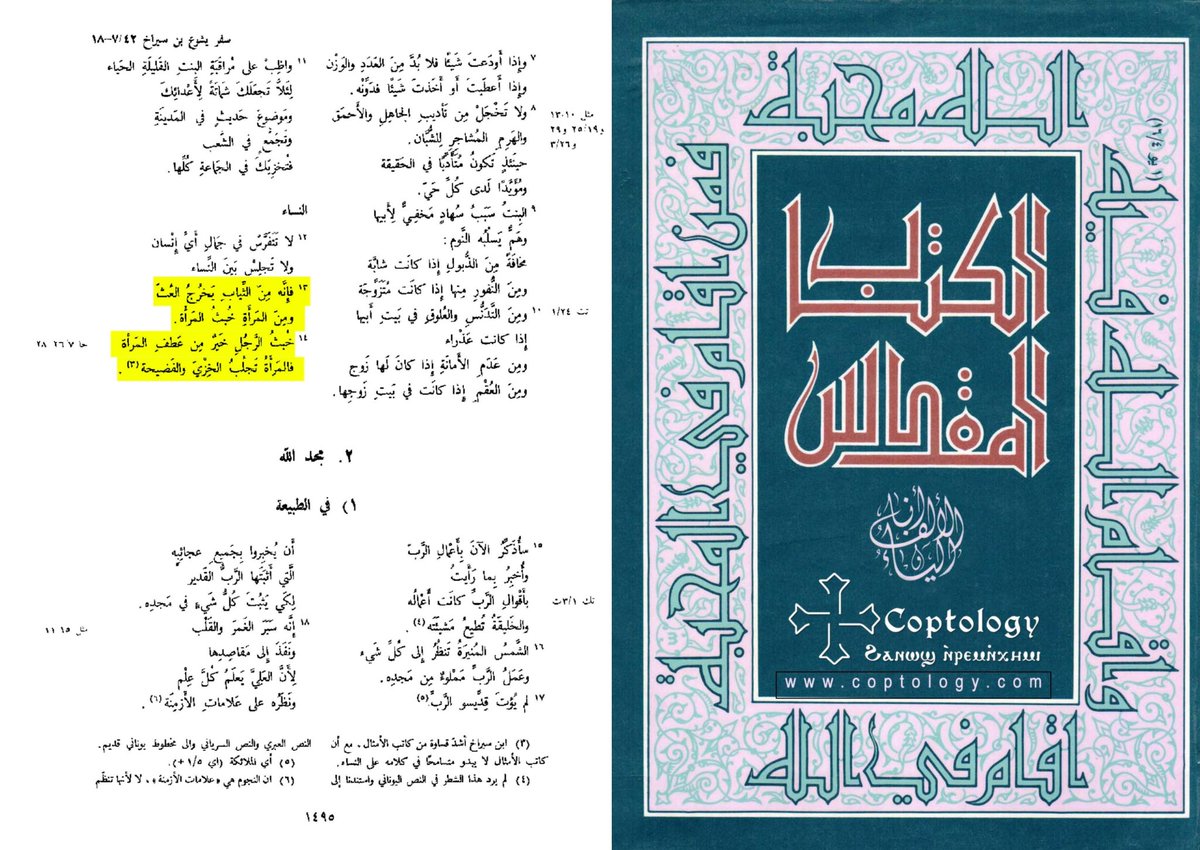 سفر يشوع بن سيراخ ٤٢/٧-١٨
٧ وإِذا أَودَعتَ شَيئًا فلا بُدَّ مِنَ العَدَدِ والوَزْن
وإِذا أَعطَيتَ أَو أَخَذتَ شَيئًا فدَوِّنْه.
٨ ولا تَخْجَلْ مِن تَأديبِ الجاهِلِ والأَحمَق
والهَرِمِ المُشاجِرِ لِلشُّبَّان.
حينَئِذٍ تَكونُ مُتَأَدِّبًا في الحَقيقة
ومُؤَيَّدًا لَدى كُلِّ حَيّ.
٩ البِنتُ سَبَبُ سُهادٍ مَخفِيٍّ لِأَبيها
وهَمٌّ يَسلُبُه النَّوم:
مَخافَةً مِنَ الذُّبولِ إِذا كانَت شابَّة
ومِنَ النُّفورِ مِنها إِذا كانَت مُتَزَوِّجَة
١٠ ومِنَ التَّدَنُّسِ والعُلوقِ في بَيتِ أَبيها
إِذا كانت عَذْراء
ومِن عَدَمِ الأَمانَةِ إِذا كانَ لَها زَوج
ومِنَ العُقْمِ إِذا كانَت في بَيتِ زَوجِها.
مثل ١٠-١٣
و١٩/٢٥ و٢٩
و٢٦/٣
تث ٢٤/١
١١ واظِبْ على مُراقَبَةِ البنتِ القَليلَةِ الحَياء
لِئَلاَّ تَجعَلَكَ شَماتَةً لِأَعْدائِكَ
ومَوضوعَ حَديثٍ في المَدينَةِ
وتَجَمُّعٍ في الشَّعب
فتُخزِيَكَ في الجَماعةِ كُلِّها.
النساء
١٢ لا تَتَفَرَّسْ في جَمالِ أَيِّ إِنْسان
ولا تَجلِسْ بَينَ النِّساء
١٣ فإِنَّه مِنَ الثِّيابِ يَخرُجُ العُثّ
ومِنَ المَرأَةِ خُبثُ المَرأَة.
١٤ خُبثُ الرَّجُلِ خَيرٌ مِن عَطفِ المَرأَة
فالمَرأَةُ تَجلُبُ الخِزْيَ والفَضيحة (٣).
جا ٧ ٢٦ ٢٨
٢. مجد الله
١) في الطبيعة
١٥ سأَذكُرُ الآنَ بِأَعْمالِ الرَّبّ
وأُخبِرُ بِما رَأَيتُ
بأَقْوالِ الرَّبِّ كانَت أَعْمالُه
والخَليقَةُ تُطيعُ مَشيئَتَه (٤).
١٦ الشَّمسُ المُنيرَةُ تَنظُرُ إِلى كُلِّ شَيء
وعَمَلُ الرَّبِّ مَمْلوءٌ مِن مَجدِه.
١٧ لم يُؤْتَ قِدِّيسو الرَّبِّ (٥)
تك ١/٣ت
أَن يُخبِروا بِجَميعِ عجائِبِه
الَّتي أَثبَتَها الرَّبُّ القَدير
لِكَي يَثبُتَ كُلُّ شَيءٍ في مَجدِه.
١٨ إِنَّه سَبَرَ الغَمرَ والقَلْب
ونَفَذَ إِلى مَقاصِدِها
لِأَنَّ العَلِيَّ يَعلَمُ كُلَّ عِلْم
ونَظَرُه على عَلاماتِ الأَزمِنَة (٦).
مثل ١٥ ١١
(٣) ابن سيراخ أشدّ قساوة من كاتب الأمثال، مع أن
كاتب الأمثال لا يبدو متسامحًا في كلامه على النساء.
(٤) لم يرد هذا الشطر في النص اليوناني واستندنا إلى
النص العبري والنص السرياني والى مخطوط يوناني قديم.
(٥) أي الملائكة (اي ٥/١+).
(٦) ان النجوم هي «علامات الأزمنة»، لا لأنها تنظّم
١٤٩٥
الله محبة
فمن أقام في المحبة
أقام في الله
وأقام الله فيه
(١ يو ٤/١٦)
الكتاب
المقدس
أنا الألف والياء
Coptology
Ϩⲁⲛⲱϣ ⲛ̀ⲣⲉⲙⲛ̀ⲭⲏⲙⲓ
www.coptology.com